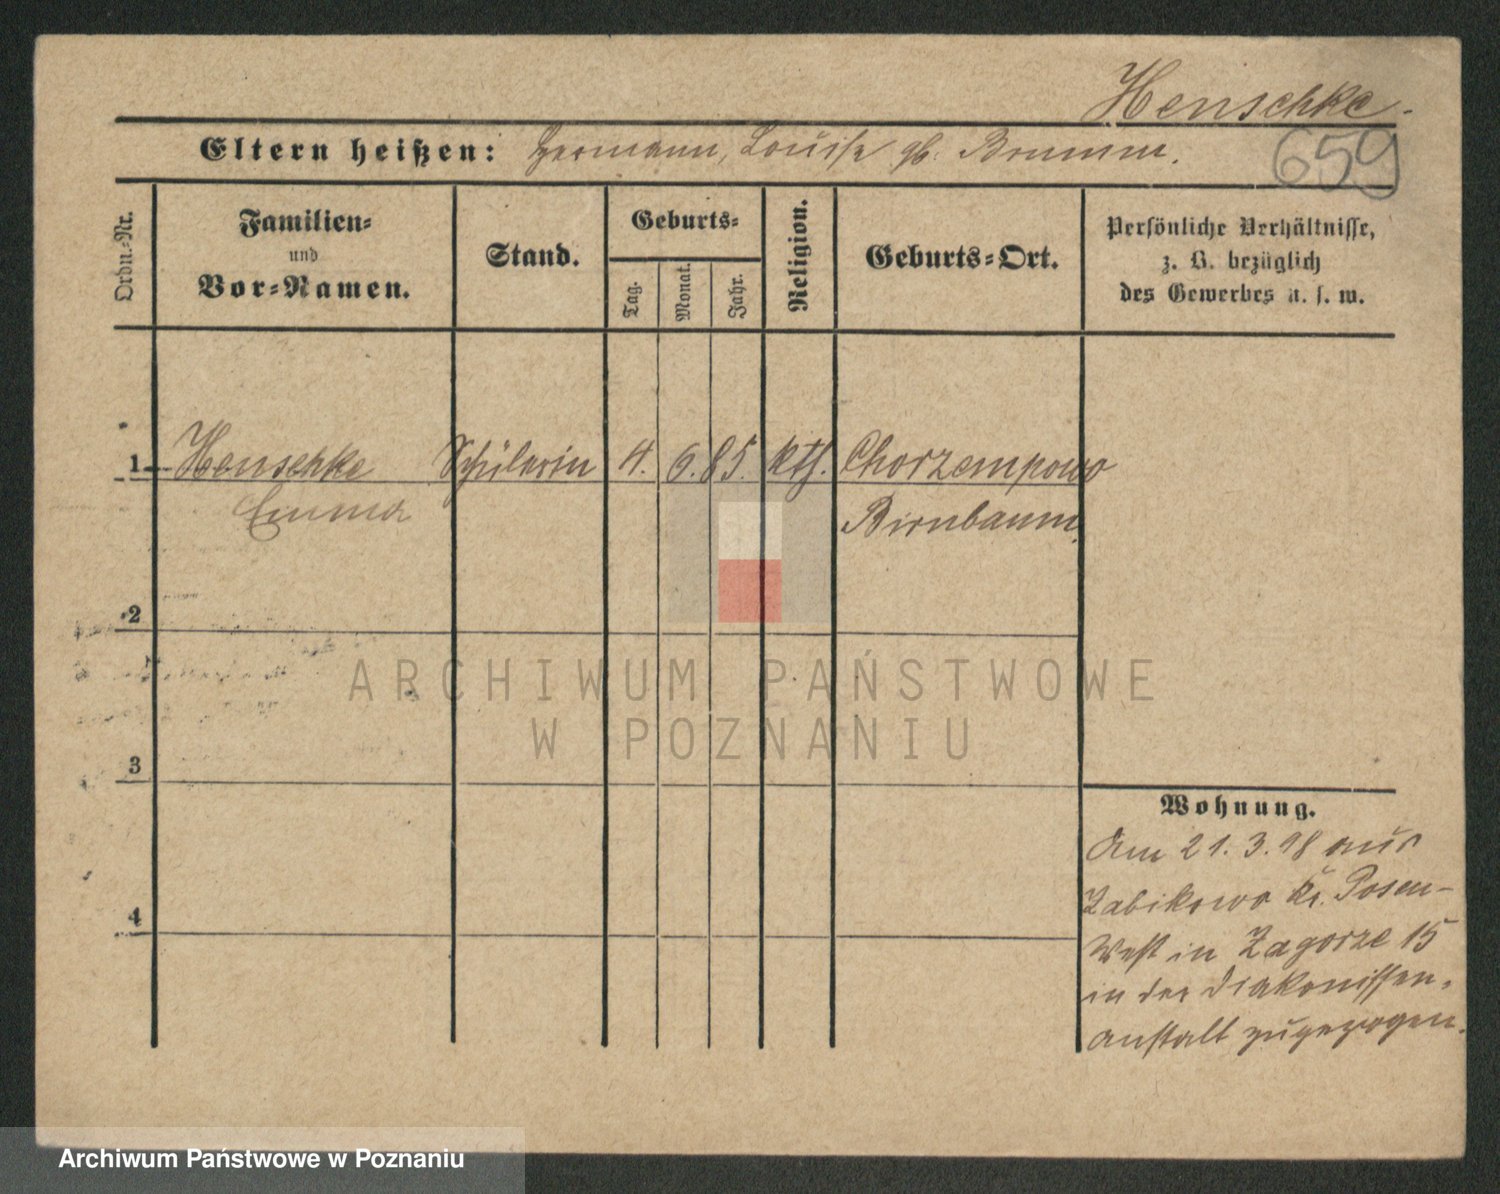 Henschke
659
Eltern heißen: Hermann, Louise gb. Brumm.
Ordn.-Nr.
Familien-
und
Vor-Namen.
Stand.
Geburts-
Tag.
Monat.
Jahr.
Religion.
Geburts-Ort.
Persönliche Verhältnisse,
z. B. bezüglich
des Gewerbes u. s. w.
1 Henschke Schülerin 4. 6. 85. kth. Chorzempowo
Emma Birnbaum.
2
3
4
Wohnung.
Am 21. 3. 98 aus
Zabikowo Kr. Posen-
West in Zagorze 15
in der Diakonissen-
anstalt zugezogen.
ARCHIWUM PAŃSTWOWE
W POZNANIU
Archiwum Państwowe w Poznaniu